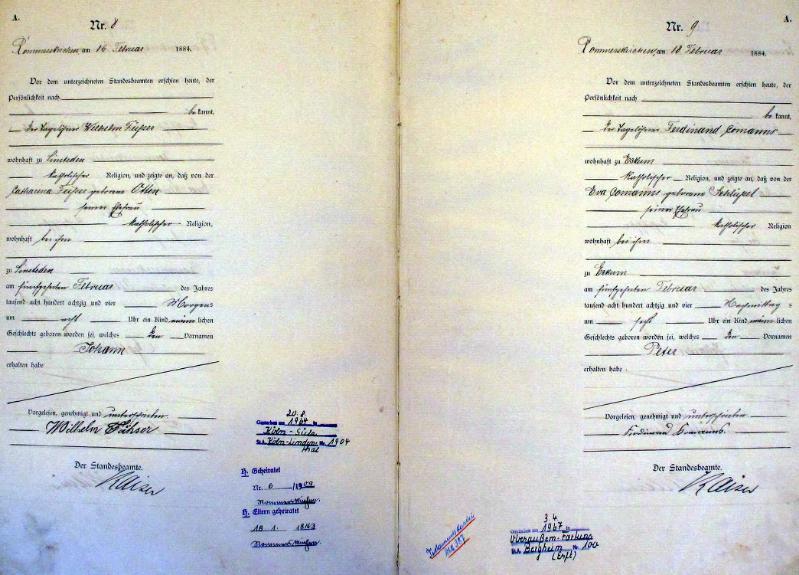 A.
Nr. 8
Rommerskirchen am 16 Februar 1884.
Vor dem unterzeichneten Standesbeamten erschien heute, der
Persönlichkeit nach
bekannt,
der Tagelöhner Wilhelm
wohnhaft zu Sinsteden
katholischer Religion, und zeigte an, daß von der
Catharina geborene Otten
seiner Ehefrau
katholischer Religion,
wohnhaft bei ihm
zu Sinsteden
am fünfzehnten Februar des Jahres
tausend acht hundert achtzig und vier Morgens
um acht Uhr ein Kind männlichen
Geschlechts geboren worden sei, welches den Vornamen
Johann
erhalten habe
Vorgelesen, genehmigt und unterschrieben
Wilhelm
Der Standesbeamte.
Kaiser
20.8.
1967
St.A. Köln-Lindenthal Nr. 1904
Geheiratet
Nr. 6
Rommerskirchen
Eltern geheiratet
18 1. 1883
Rommerskirchen
A.
Nr. 9
Rommerskirchen am 18 Februar 1884.
Vor dem unterzeichneten Standesbeamten erschien heute, der
Persönlichkeit nach
bekannt,
der Tagelöhner Ferdinand Comanns
wohnhaft zu Eckum
katholischer Religion, und zeigte an, daß von der
Eva Comanns geborene Schlüpel
seiner Ehefrau
katholischer Religion
wohnhaft bei ihm
zu Eckum
am fünfzehnten Februar des Jahres
tausend acht hundert achtzig und vier Nachmittags
um sechs Uhr ein Kind männlichen
Geschlechts geboren worden sei, welches den Vornamen
Peter
erhalten habe
Vorgelesen, genehmigt und unterschrieben
Ferdinand
Der Standesbeamte.
Kaiser
3.4.
1967
St.A. Bergheim Nr. 100
(Erft)